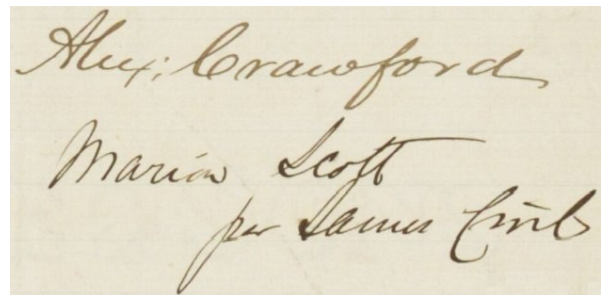 Alex: Crawford
Marion Scott
per James